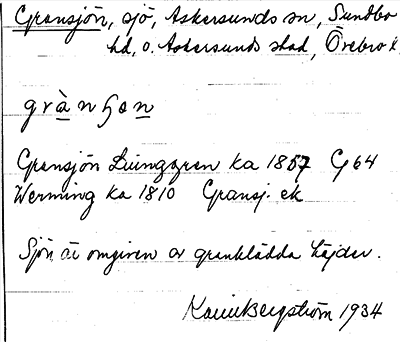 Gransjön, sjö, Askersunds sn, Sundbo
hd, o. Askersunds stad, Örebro l
grànʃon
Gransjön Ljunggren ka 1857 G 64
Werming ka 1810 Gransj. ek
Sjön är omgiven av granklädda höjder.
Karin Bergström 1934